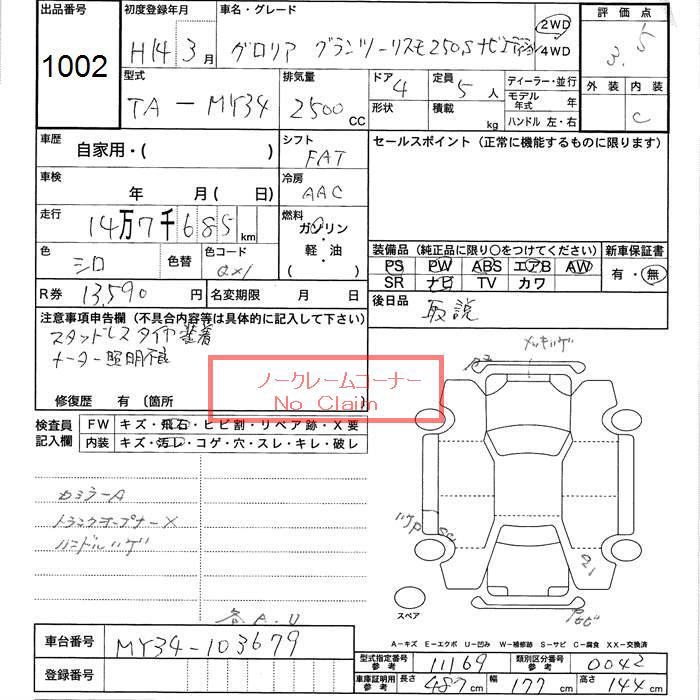 出品番号 初度登録年月 車名・グレード 評価点
1002 H14 3月 グロリア グランツーリスモ250S ナビエディション 2WD 4WD 3.5
型式 排気量 ドア 4 定員 5人 ディーラー・並行 外装 内装
TA-MY34 2500cc 形状 積載 kg モデル年式 年 C
ハンドル 左・右
車歴 シフト セールスポイント (正常に機能するものに限ります)
自家用・( ) FAT
車検 冷房
年 月( 日) AAC
走行 燃料
14万7千685km ガソリン・軽・油
( )
色 色替 色コード 装備品 (純正品に限り〇をつけてください) 新車保証書
シロ QX1 PS PW ABS エアB AW 有・無
SR ナビ TV カワ
R券 13,590円 名変期限 月 日 後日品
取説
注意事項申告欄 (不具合内容等は具体的に記入して下さい)
スタッドレスタイヤ装着
メーター照明不良
ノークレームコーナー
No Claim
修復歴 有 (箇所 )
検査員記入欄 FW キズ・飛石・ヒビ割・リペア跡・X要
内装 キズ・汚レ・コゲ・穴・スレ・キレ・破レ
メッキハゲ
カミラーA
トランクオープナーX
ハンドルハゲ
ハゲP
各A.U
スペア
A-キズ E-エクボ U-凹み W-補修跡 S-サビ C-腐食 XX-交換済
車台番号 MY34-103679
登録番号
型式指定番号 参考 11169 類別区分番号 参考 0042
車庫証明用 参考 長さ 487cm 幅 177cm 高さ 144cm